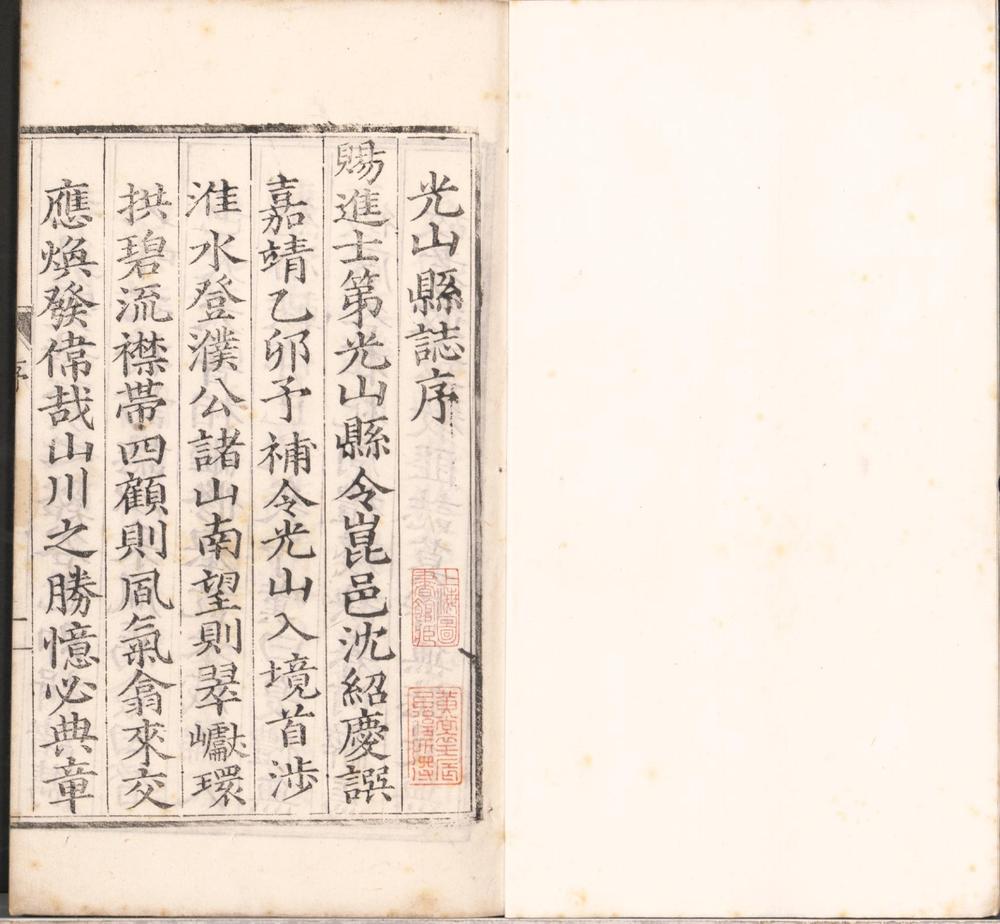 光山縣誌序
賜進士第光山縣令崑邑沈紹慶譔
嘉靖乙卯予補令光山入境首涉
淮水登濮公諸山南望則翠巘環
拱碧流襟帶四顧則凮氣翕來交
應煥發偉哉山川之勝憶必典章
序
上海圖書館藏